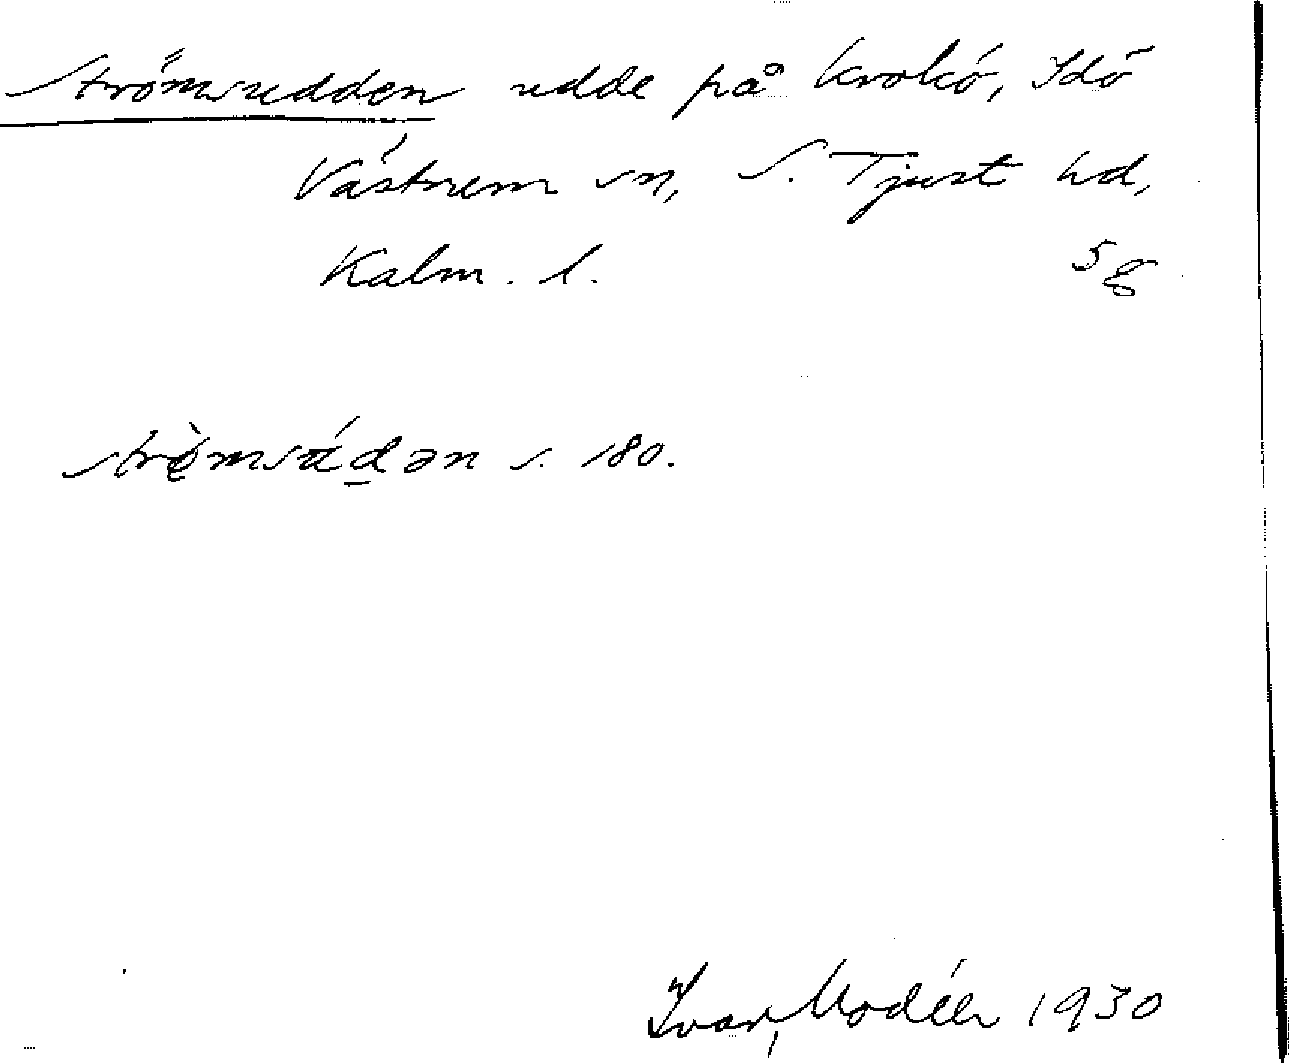 Strömsudden udde på Krokö, Idö
Västrum sn, S. Tjust hd,
Kalm. l.
5 g
strö̀msúdən s. 180.
Ivar Modéer 1930